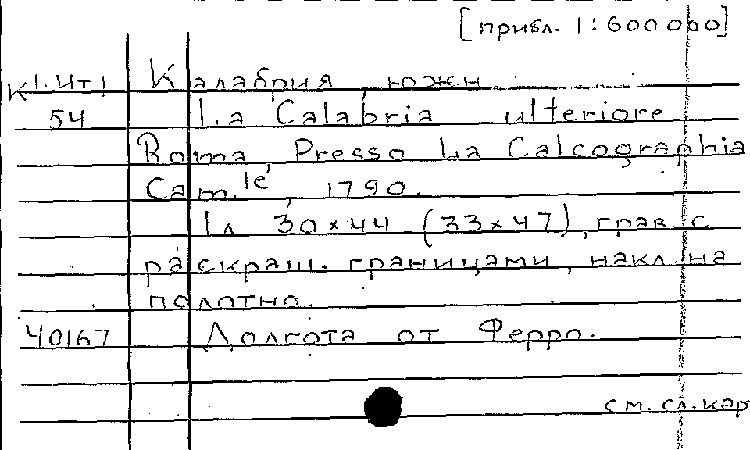 [прибл. 1:600 000]
К1.Ит1 Калабрия южн
54 La Calabria ulteriore
Roma, Presso la Calcographia
Cam.le, 1790.
1л 30×44 (33×47), грав с
раскраш. границами, накл на
полотно.
40167 Долгота от Ферро.
см. сл. кар